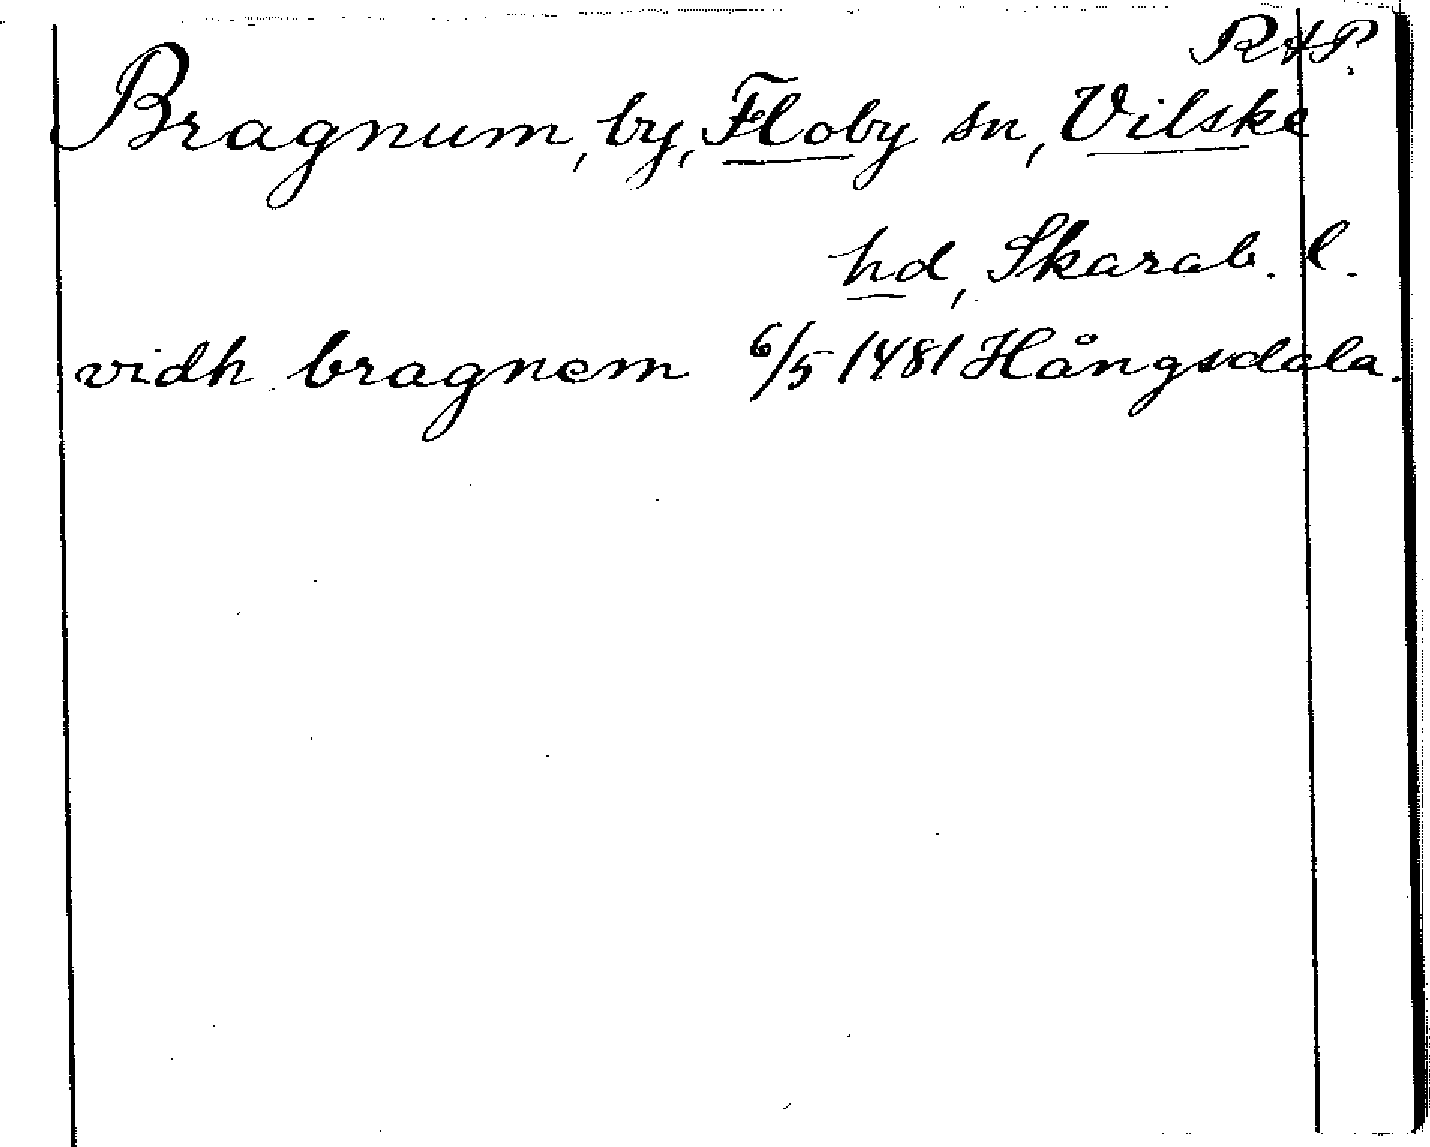 RAP.
Bragnum, by, Floby sn, Vilske
hd, Skarab. l.
vidh bragnem 6/5 1481 Hångsdala.